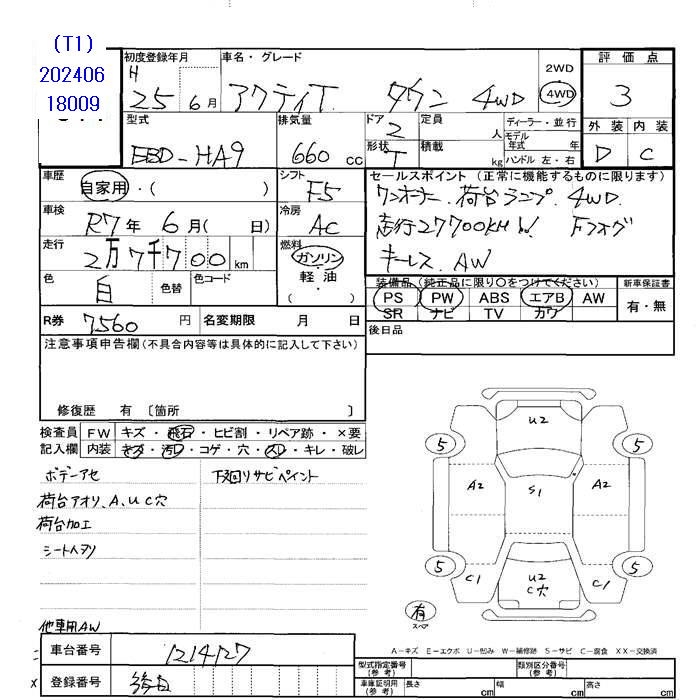 (T1)
202406
18009
初度登録年月 車名・グレード 評価点
H 25年 6月 アクティT タウン 4WD 2WD 4WD 3
型式 排気量 ドア 定員 ディーラー・並行 外装 内装
EBD-HA9 660 cc 2 人 モデル 年式 年 D C
形状 T 積載 kg ハンドル 左・右
車歴 自家用・( ) シフト F5 セールスポイント (正常に機能するものに限ります)
ワンオーナー. 荷台ランプ. 4WD.
車検 R7年 6月( 日) 冷房 AC 走行27700KM!! Fフォグ
走行 2万7千700km 燃料 ガソリン・軽油・( ) キーレス. AW
色 白 色替 色コード 装備品 (純正品に限り○をつけてください) 新車保証書
PS PW ABS エアB AW 有・無
SR ナビ TV カワ
R券 7560円 名変期限 月 日 後日品
注意事項申告欄(不具合内容等は具体的に記入して下さい)
修復歴 有 〔箇所 〕
検査員 FW キズ・飛石・ヒビ割・リペア跡・×要
記入欄 内装 キズ・汚レ・コゲ・穴・スレ・キレ・破レ
ボデーアセ 下回リサビペイント
荷台アオリ、A、U、C穴
荷台加工
シートヘタリ
他車用AW
U2
5 5
A2 S1 A2
5 5
C1 U2 C1
C穴
有
スペア
A-キズ E-エクボ U-凹み W-補修跡 S-サビ C-腐食 XX-交換済
車台番号 1214127
登録番号 後日
型式指定番号(参考) 類別区分番号(参考)
車庫証明用(参考) 長さ cm 幅 cm 高さ cm